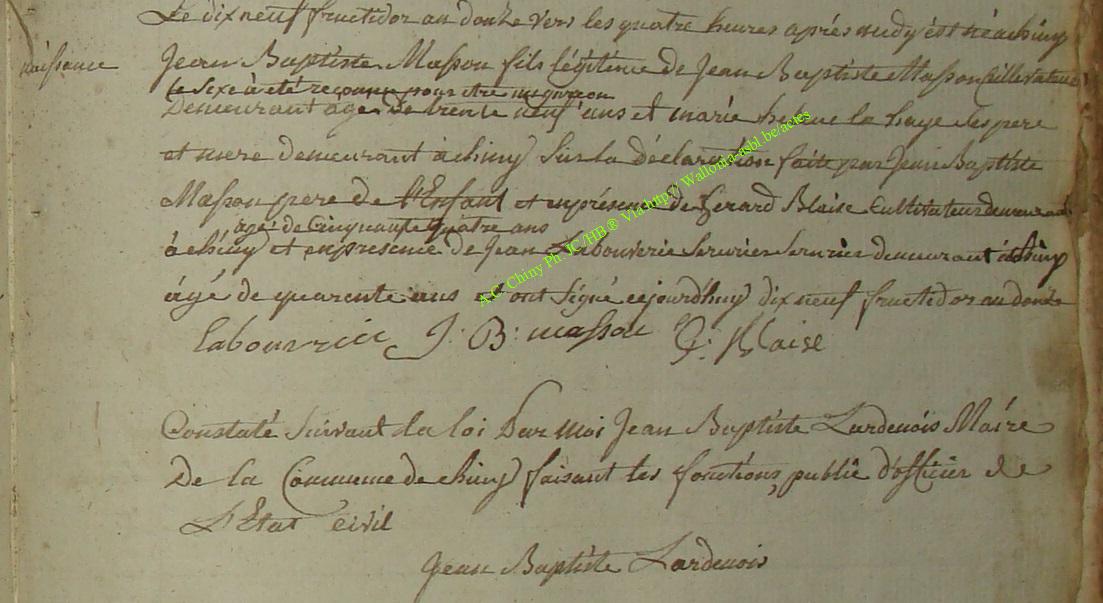 Le dix neuf fructidor an douze vers les quatre heures après midy est né à chiny
naissance
Jean Baptiste Masson fils légitime de Jean Baptiste Masson
le sexe à été reconnu pour être un garçon
Demeurant agé de trente neuf ans et marie la haye ses pere
et mere demeurant à chiny Sur la déclaration faite par Jean Baptiste
Masson pere de l'Enfant et en présence de Gerard Blaise Cultivateur demeurant
agé de Cinquante quatre ans
à chiny et en presence de Jean Labouverie Serurier Serurier demeurant à chiny
âgé de quarente ans et ont Signé cejourd'huy dix neuf fructidor an douze
Labouverie J: B: masson G: Blaise
Constaté Suivant la loi Par moi Jean Baptiste Lardenois Maire
De la Commune de chiny faisant les fonctions publie d'officier de
L'Etat civil
Jean Baptiste Lardenois
A.C. Chiny Ph. JC/HB® Via http// Wallonia-asbl.be/actes